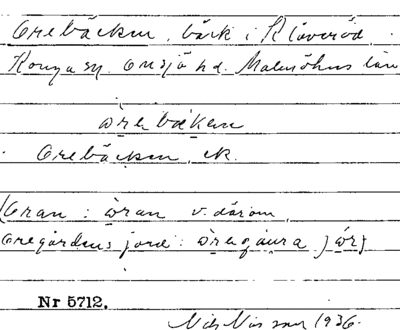 Orebäcken, bäck i Klöveröd,
Konga sn. Onsjö hd. Malmöhus län
òrebækæn
Orebäcken, ek.
(Oran: òran v. därom,
Oregårdens jord:
Nr 5712.
Nils Nilsson 1936.